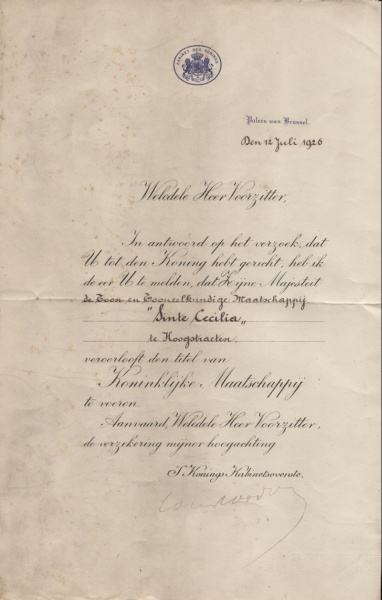 KABINET DES KONINGS
Paleis van Brussel.
Den 12 Juli 1926
Weledele Heer Voorzitter,
In antwoord op het verzoek, dat
U tot den Koning hebt gericht, heb ik
de eer U te melden, dat Zijne Majesteit
de Toon en Tooneelkundige Maatschappij
"Sinte Cecilia„
te Hoogstraeten,
veroorlooft den titel van
Koninklijke Maatschappij
te voeren
Aanvaard, Weledele Heer Voorzitter,
de verzekering mijner hoogachting
S' Konings Kabinetsoverste,